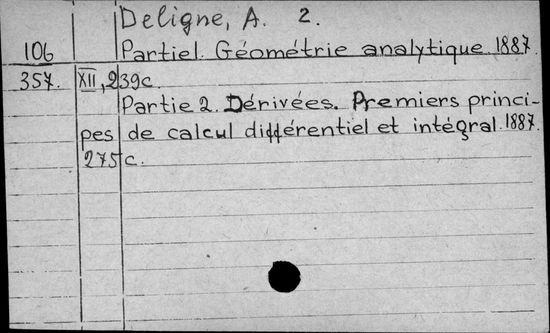 Deligne, A. 2.
106 Partie1. Géométrie analytique 1887.
357. XII, 239c.
Partie 2. Dérivées. Premiers princi-
pes de calcul différentiel et intégral. 1887.
275c.